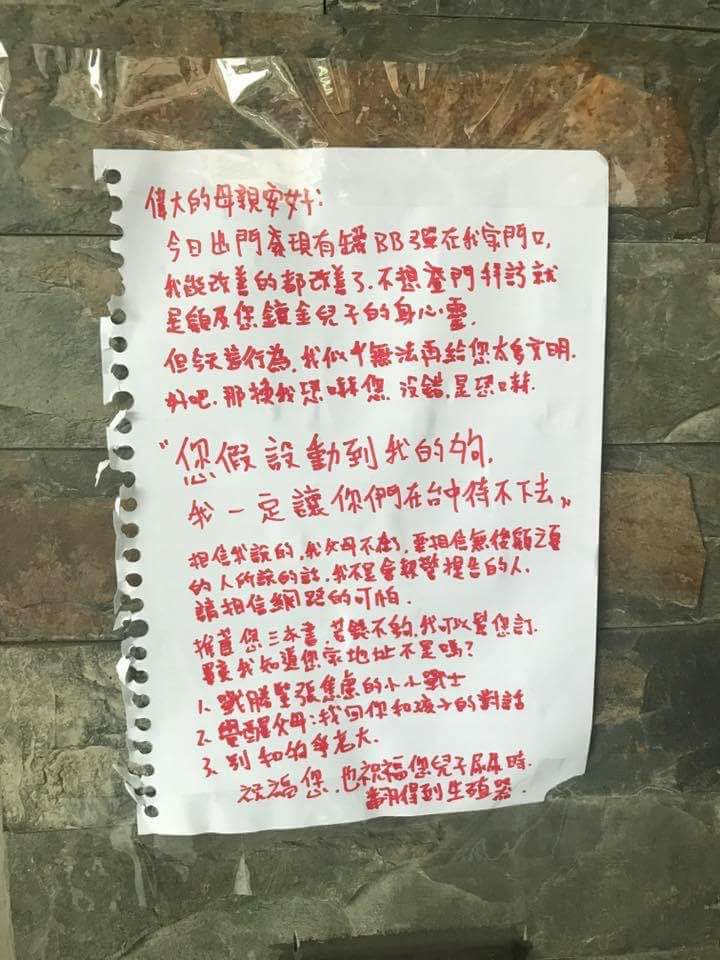 偉大的母親您好:
今日出門發現有罐BB彈在我家門口,
我能改善的都改善了.不想登門拜訪就
是顧及您鍍金兒子的身心靈.
但今天這行為,我似乎無法再給您太多文明.
好吧.那換我恐嚇您.沒錯,是恐嚇.
"您假設動到我的狗,
我一定讓你們在台中待不下去"
相信我說的,我父母不在了,要相信無後顧之憂
的人所說的話,我不是會報警提告的人.
請相信網路的可怕.
推薦您三本書.若錢不夠,我可以幫您訂.
畢竟我知道您家地址不是嗎?
1. 戰勝緊張焦慮的小小戰士
2. 覺醒父母:找回你和孩子的對話
3. 別和狗爭老大.
祝福您,也祝福您兒子尿尿時.
翻得到生殖器.